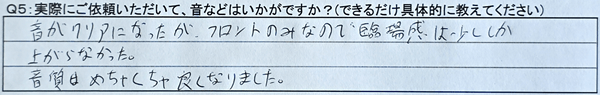 Q5:実際にご依頼いただいて、音などはいかがですか?(できるだけ具体的に教えてください)
音がクリアになったが、フロントのみなので臨場感は少ししか
上がらなかった。
音質はめちゃくちゃ良くなりました。